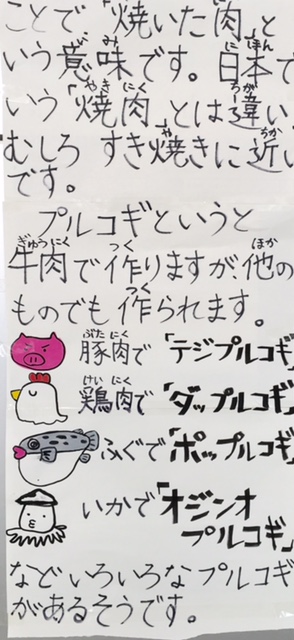 ことで「焼いた肉」と
いう意味です。日本で
いう「焼肉」とは違い
むしろ すき焼きに近い
です。
プルコギというと
牛肉で作りますが、他の
ものでも作られます。
豚肉で「テジプルコギ」
鶏肉で「ダップルコギ」
ふぐで「ポップルコギ」
いかで「オジンオ
プルコギ」
などいろいろなプルコギ
があるそうです。